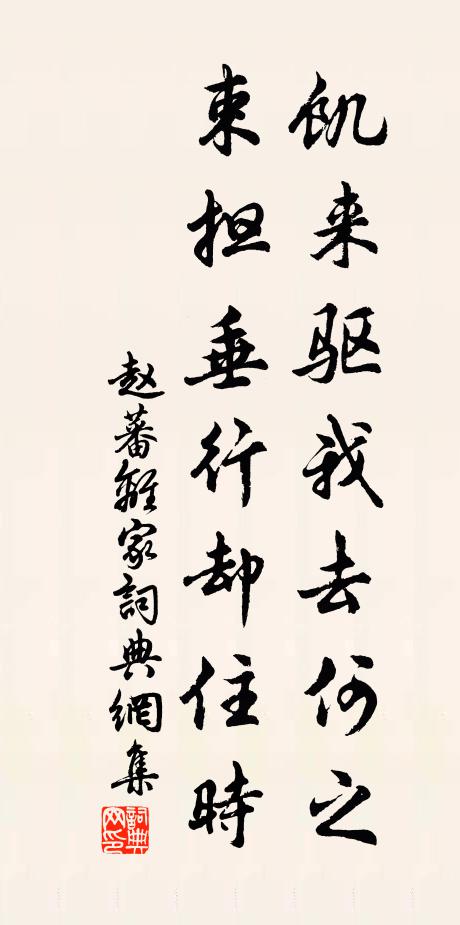 飢来驱我去何之
束担垂行却住時
赵蕃離家詞典網集
詞典網印